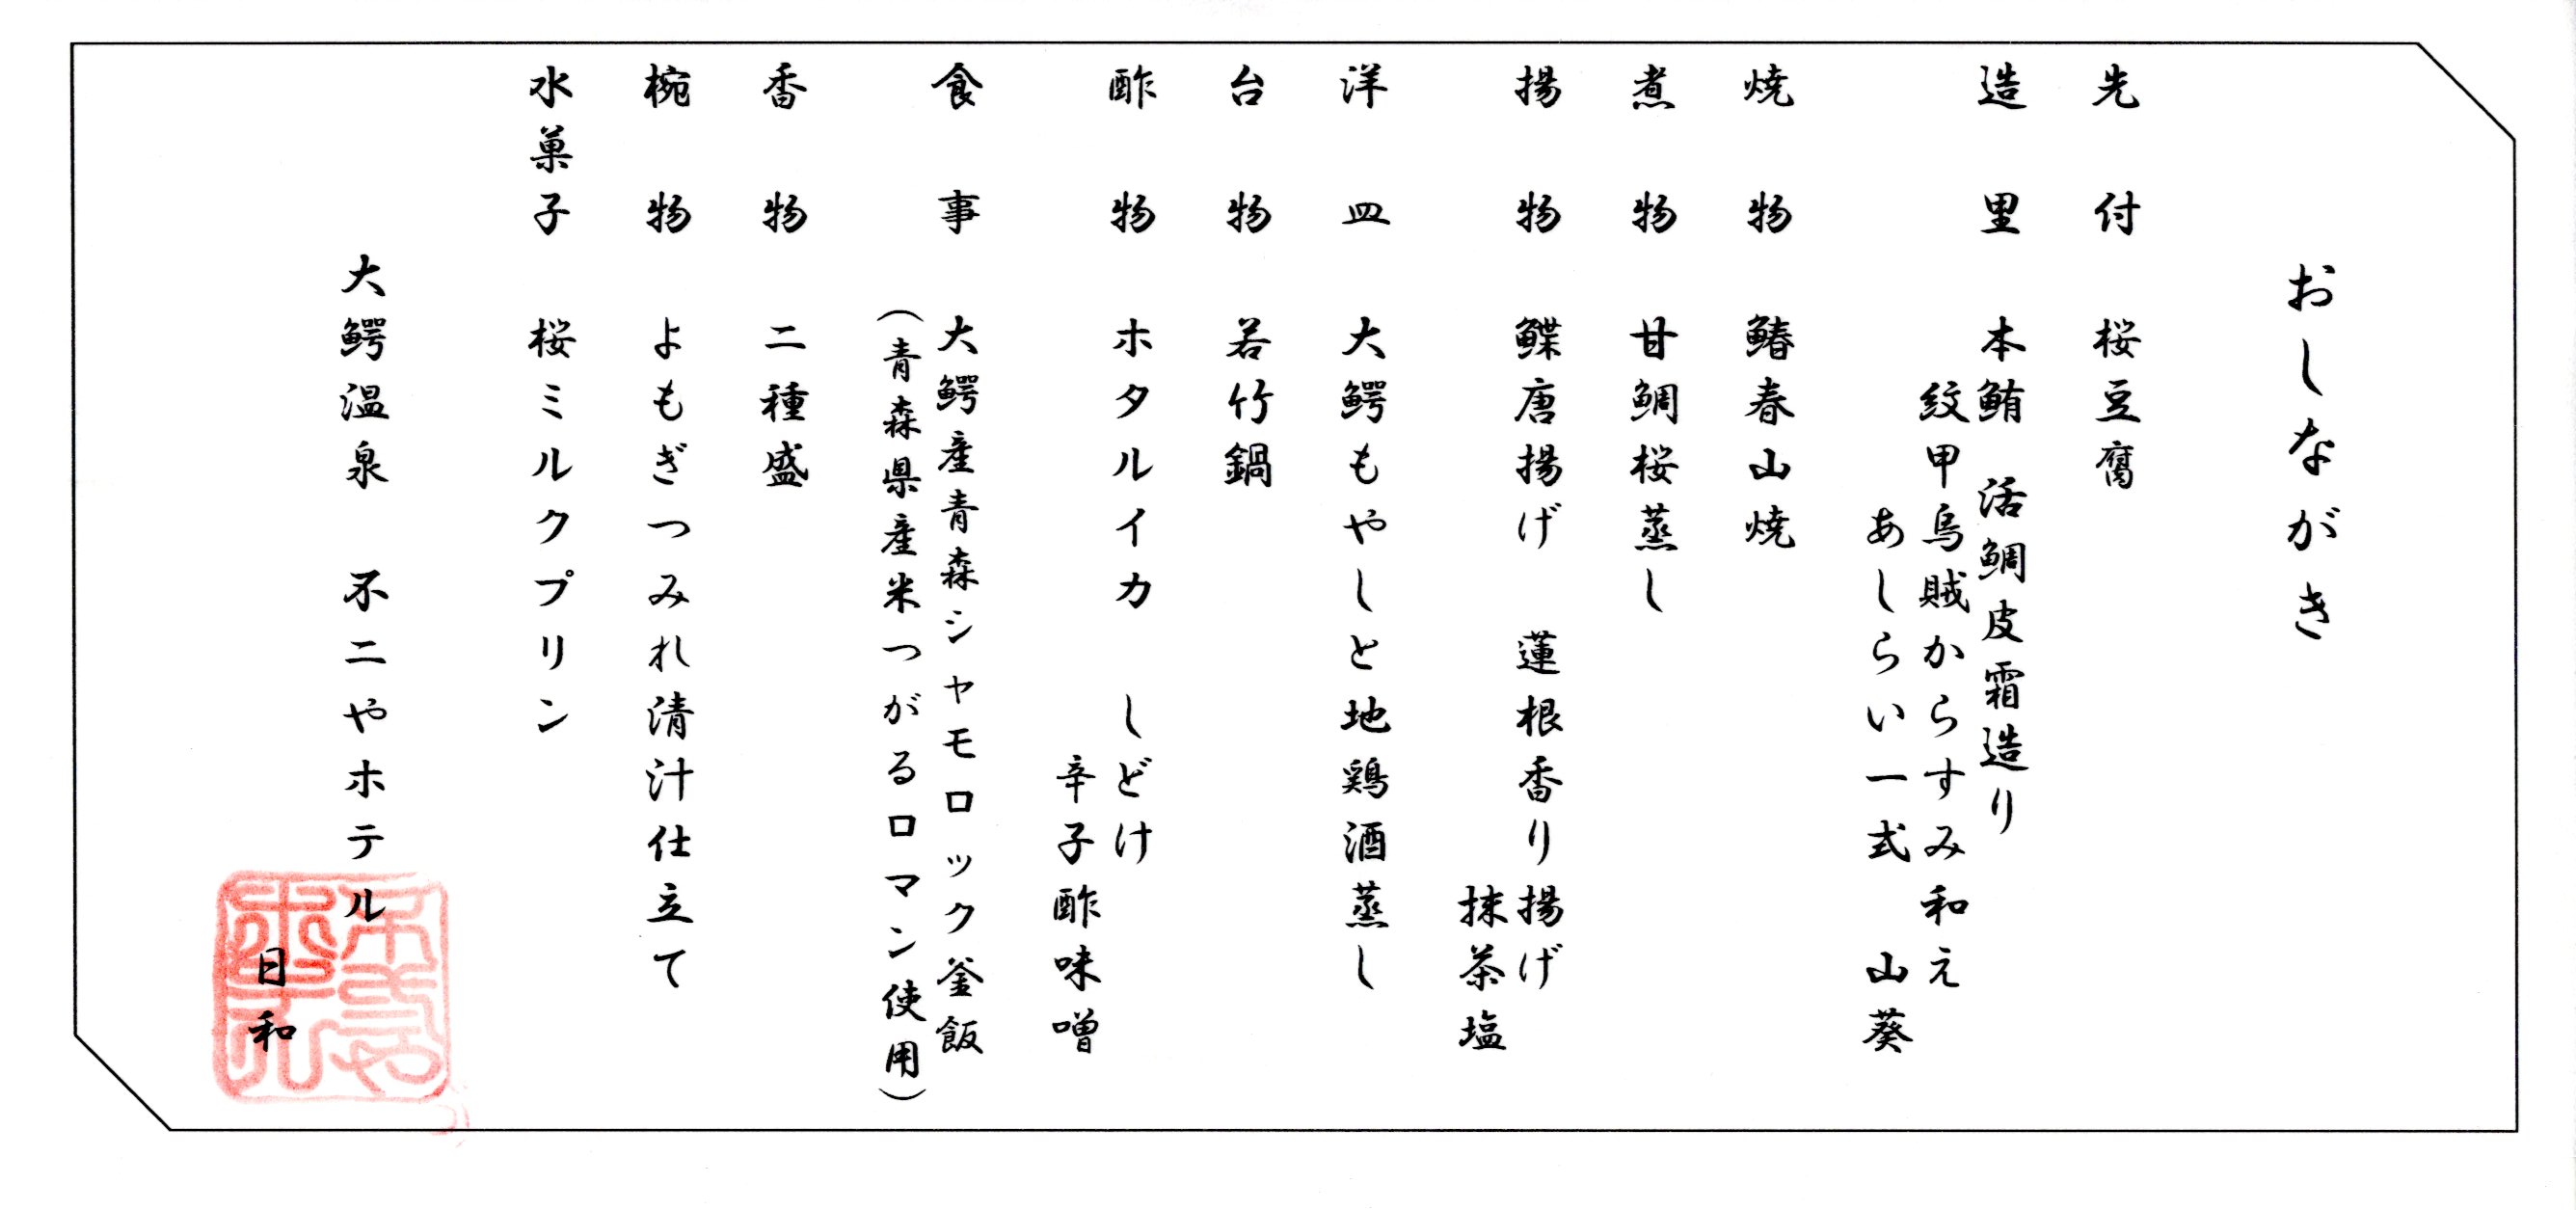 おしながき
先付　桜豆腐
造里　本鮪　活鯛皮霜造り
紋甲烏賊からすみ和え
あしらい一式　山葵
焼物　鰆春山焼
煮物　甘鯛桜蒸し
揚物　鰈唐揚げ　蓮根香り揚げ
抹茶塩
洋皿　大鰐もやしと地鶏酒蒸し
台物　若竹鍋
酢物　ホタルイカ　しどけ
辛子酢味噌
食事　大鰐産青森シャモロック釜飯
（青森県産米つがるロマン使用）
香物　二種盛
椀物　よもぎつみれ清汁仕立て
水菓子　桜ミルクプリン
大鰐温泉　不二やホテル
日和